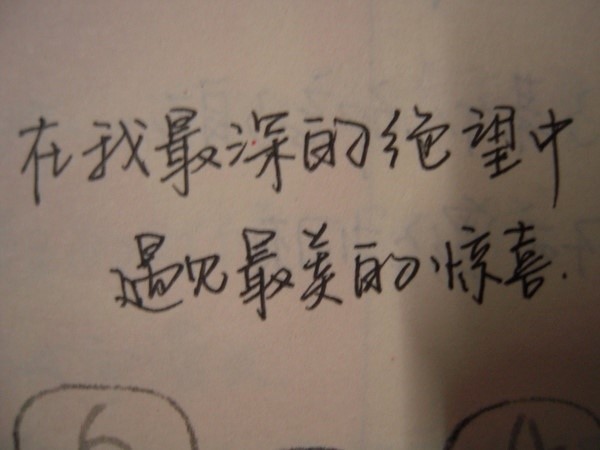 在我最深的绝望中
遇见最美的惊喜.
6